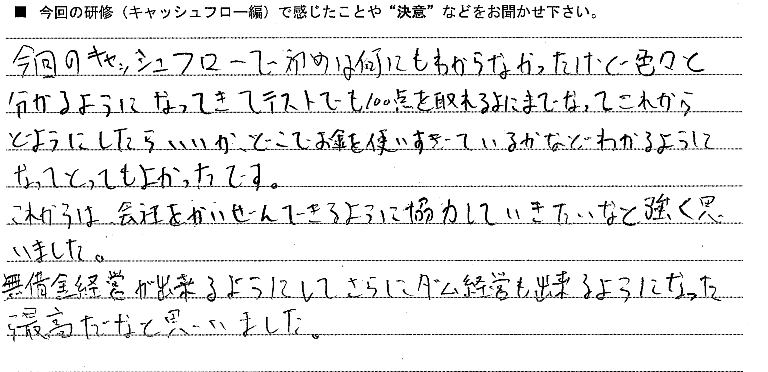 ■ 今回の研修（キャッシュフロー編）で感じたことや“決意”などをお聞かせ下さい。
今回のキャッシュフローで初めは何にもわからなかったけど色々と
分かるようになってきてテストでも100点を取れるよにまでなってこれから
どようにしたらいいか、どこでお金を使いすぎているかなどわかるように
なってとってもよかったです。
これからは会社をかいぜんできるように協力していきたいなと強く思
いました。
無借金経営が出来るようにしてさらにダム経営も出来るようになった
ら最高だなと思いました。